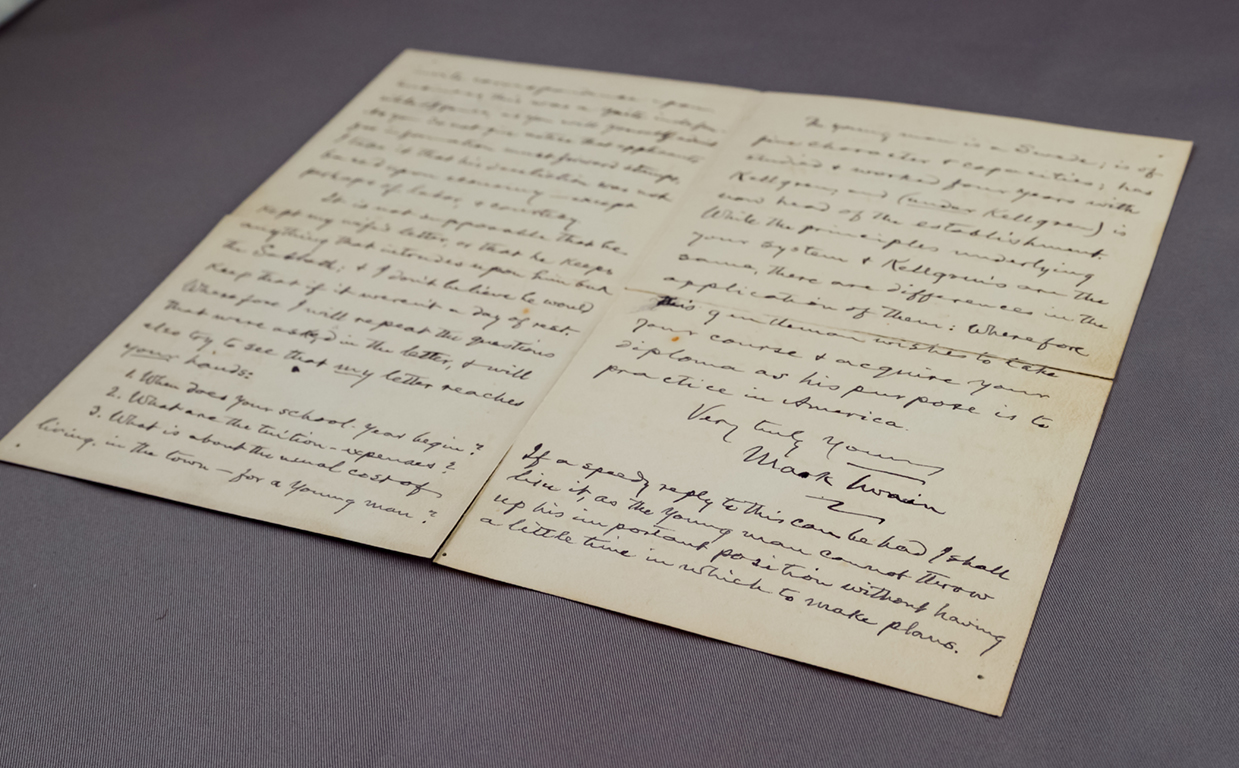 correspondence upon
this was a quite
as you will yourself
do not give notice that applicants
for information must forward stamps,
that his was not
based upon economy except
perhaps of labor, & courtesy
It is not supposable that he
kept my wife's letter, or that he keeps
anything that intrudes upon him but
the Sabbath; & I don't believe he would
keep that if it weren't a day of rest.
Wherefore I will repeat the questions
that were asked in the letter, & will
also try to see that my letter reaches
your hands:
1. When does your school-year begin?
2. What are the tuition-expenses?
3. What is about the usual cost of
living, in the town — for a young man?
The young man is a Swede; is of
fine character & capacities; has
studied & worked four years with
Kellgren, and (under Kellgren) is
now head of the establishment.
While the principles underlying
your system & Kellgren's are the
same, there are differences in the
application of them: Wherefore
this gentleman wishes to take
your course & acquire your
diploma as his purpose is to
practice in America.
Very truly yours
Mark Twain
If a speedy reply to this can be had I shall
like it, as the young man cannot throw
up his important position without having
a little time in which to make plans.